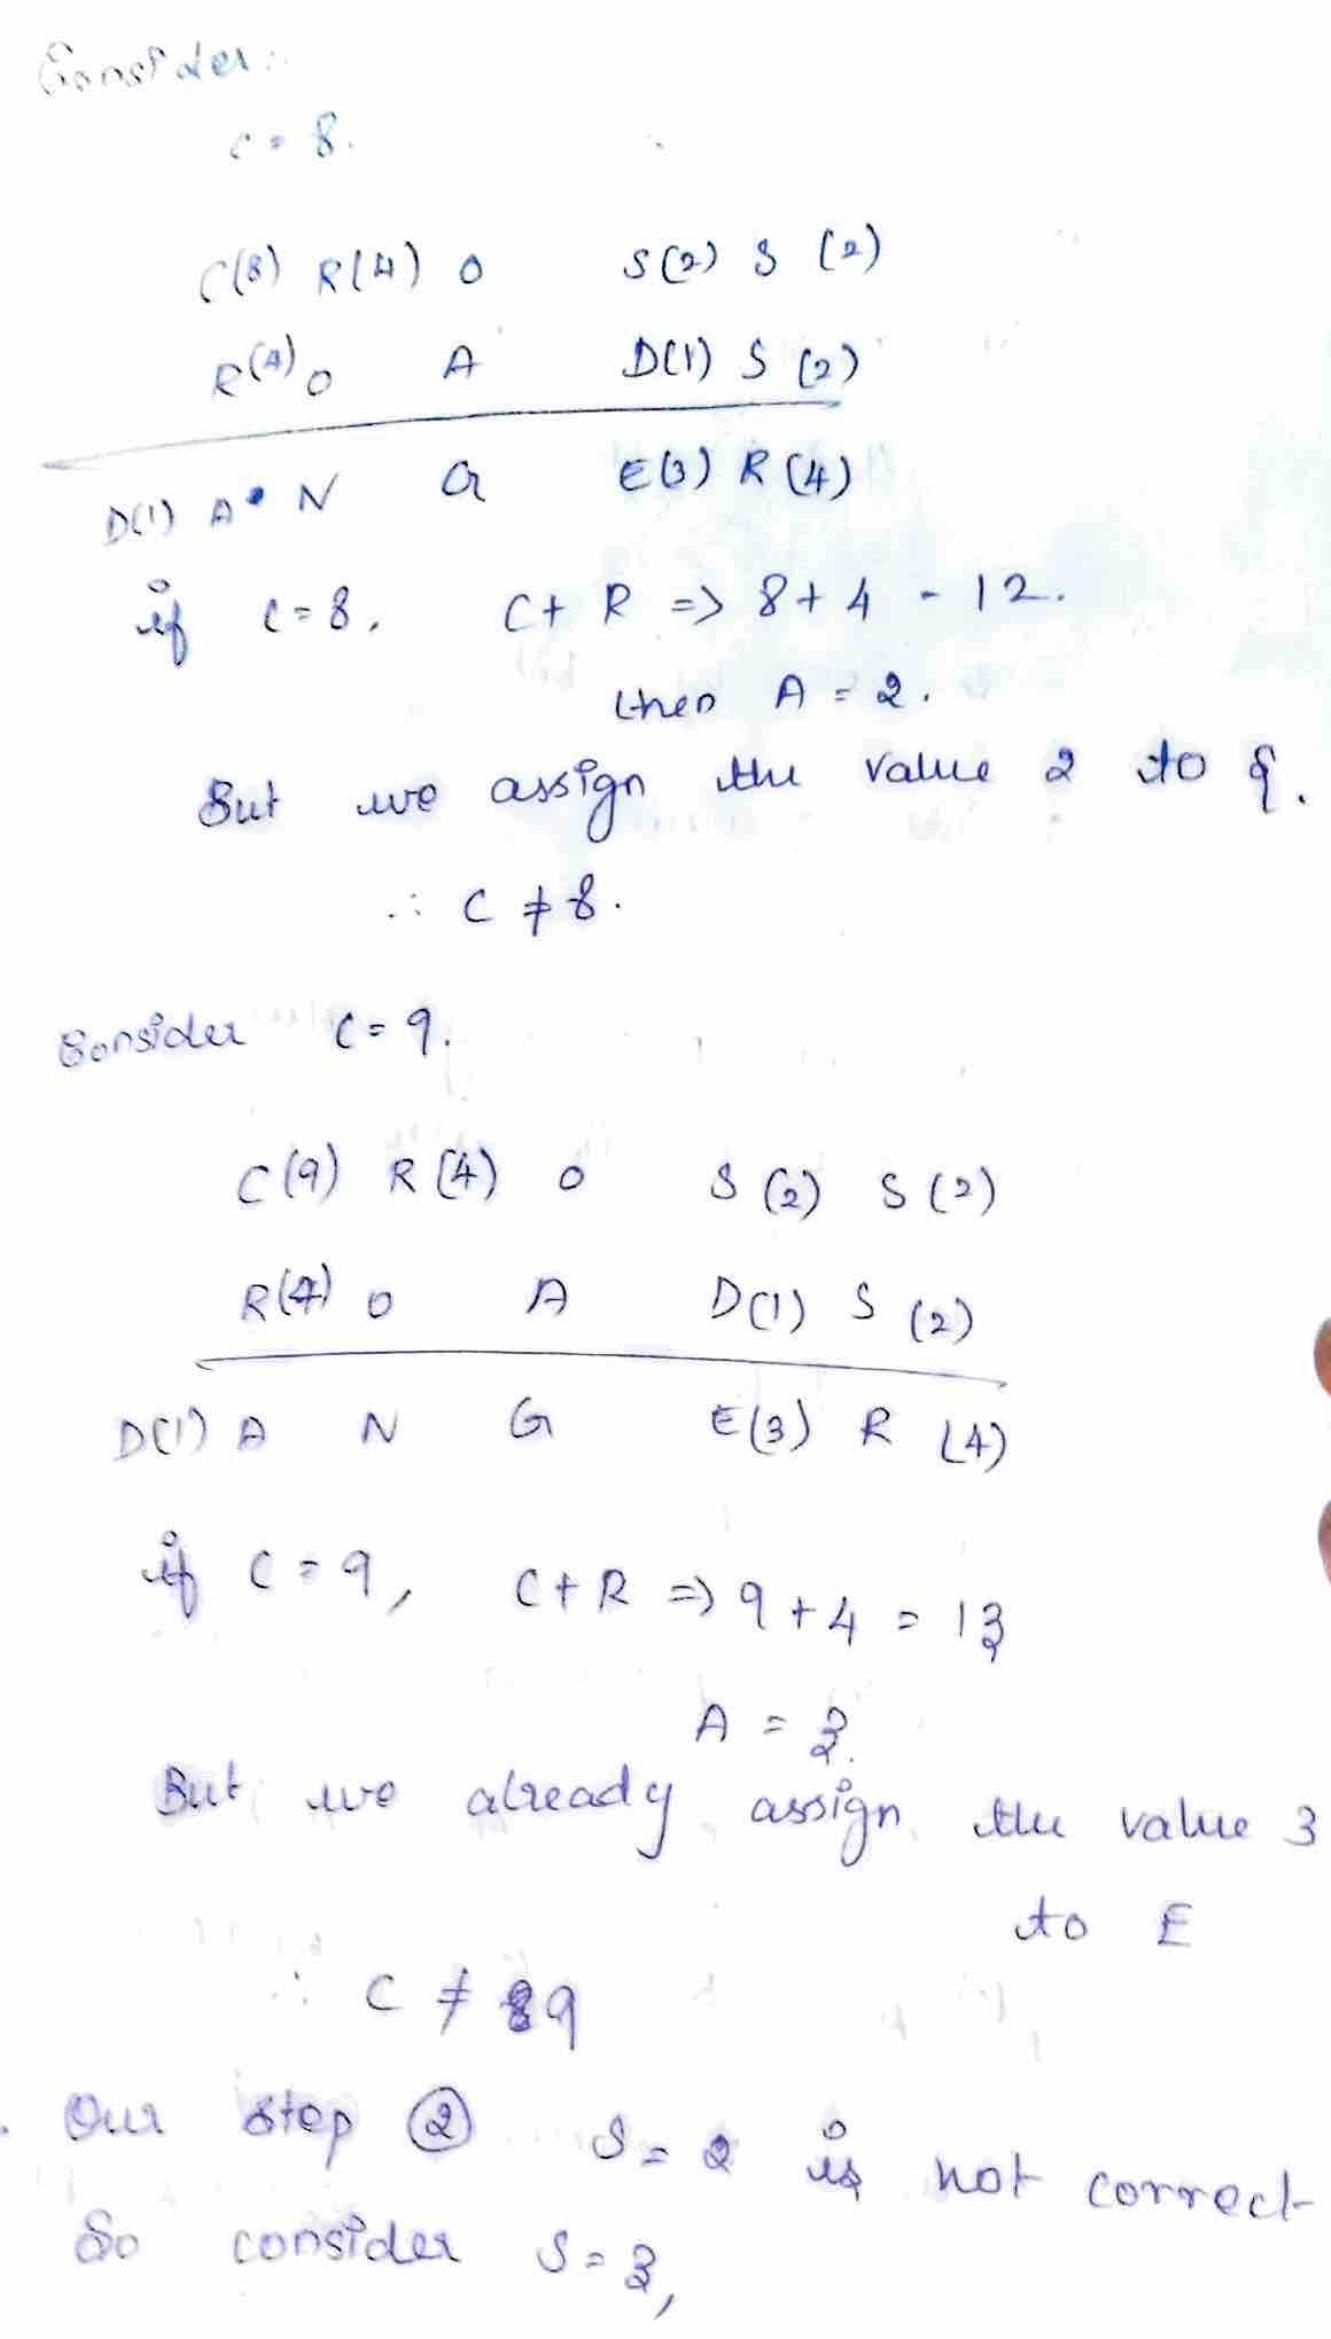 Consider:
C = 8.
C(8) R(4) O S(2) S (2)
R(4) O A D(1) S (2)
D(1) A N G E(3) R (4)
if C = 8, C + R => 8 + 4 = 12.
then A = 2.
But we assign the value 2 to S.
∴ C ≠ 8.
Consider C = 9.
C(9) R(4) O S (2) S (2)
R(4) O A D(1) S (2)
D(1) A N G E(3) R (4)
if C = 9, C + R => 9 + 4 = 13
A = 3.
But we already assign the value 3
to E
∴ C ≠ 9
Our step ② S = 2 is not correct
So consider S = 3,